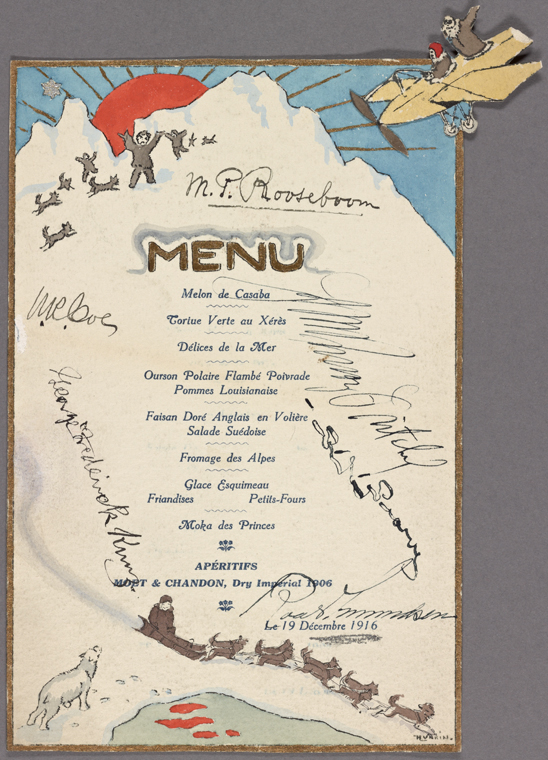 M. P. Rooseboom
MENU
Melon de Casaba
Tortue Verte au Xérès
Délices de la Mer
Ourson Polaire Flambé Poivrade
Pommes Louisianaise
Faisan Doré Anglais en Volière
Salade Suédoise
Fromage des Alpes
Glace Esquimeau
Friandises Petits-Fours
Moka des Princes
APÉRITIFS
MOET & CHANDON, Dry Imperial 1906
Le 19 Décembre 1916
George Frederick
Roald Amundsen